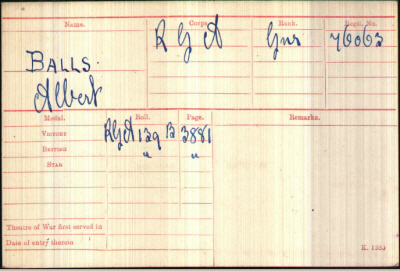 Name. Corps. Rank. Regtl. No.
BALLS. R G A Gnr 76063
Albert
Medal. Roll. Page. Remarks.
VICTORY RGA 139 B 3881
BRITISH " "
STAR
Theatre of War first served in
Date of entry therein
K. 1380